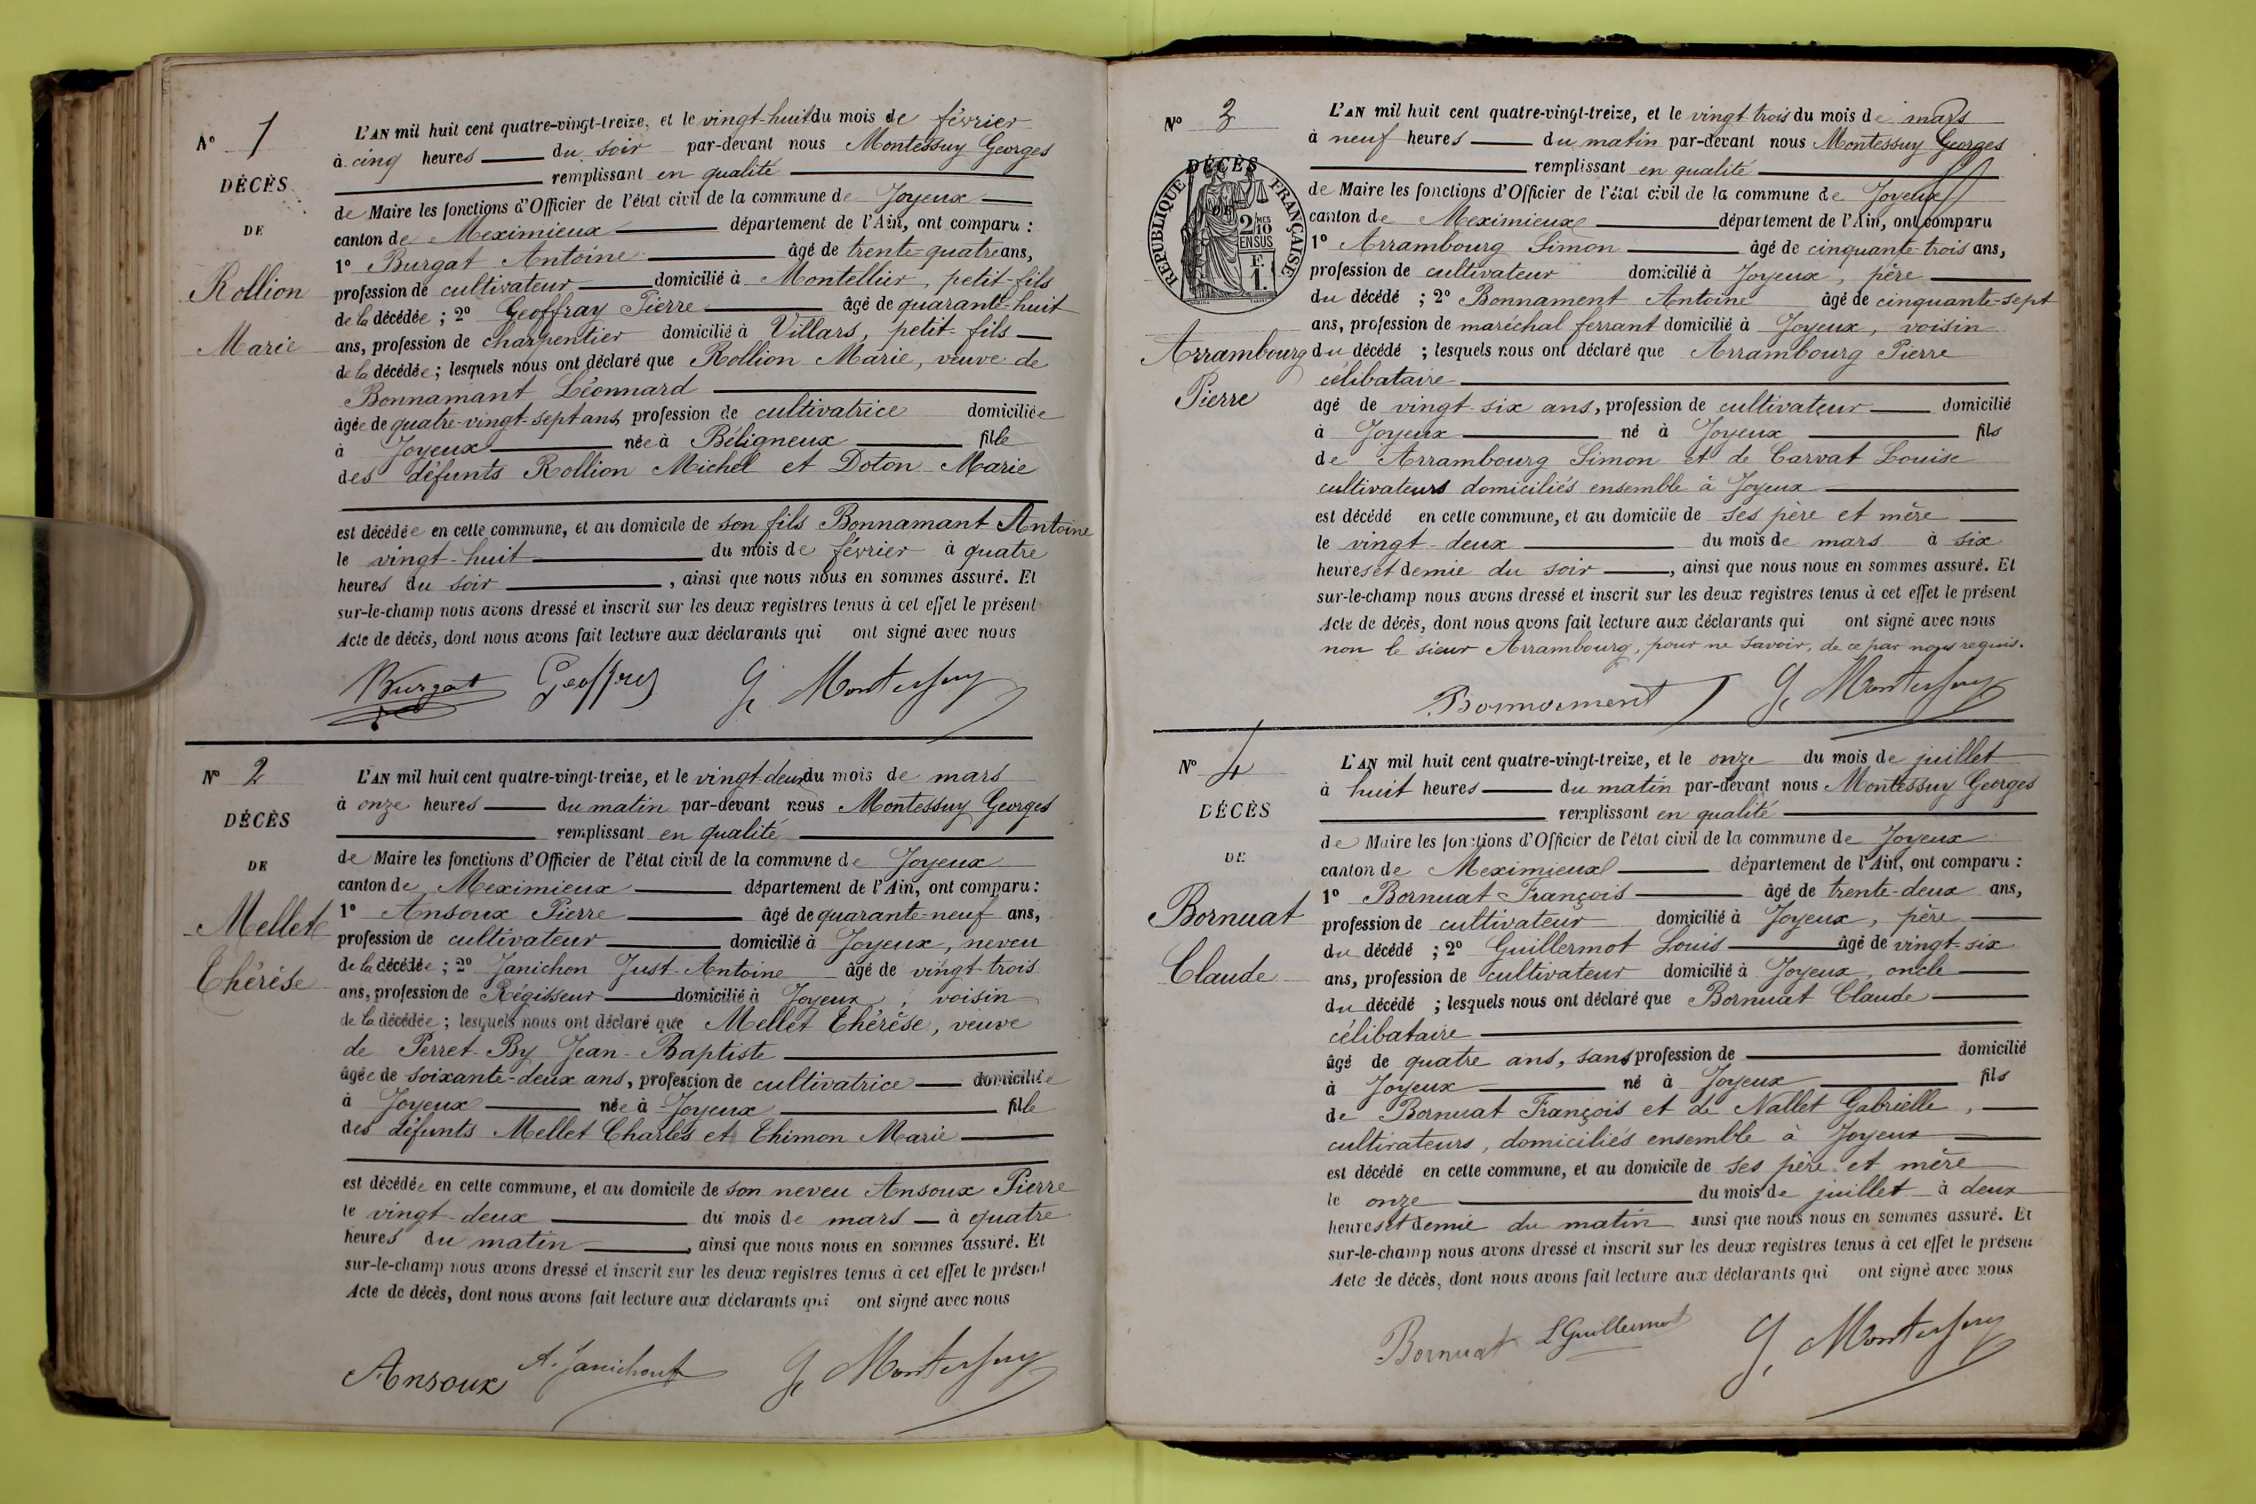 N° 1
DÉCÈS
DE
Rollion
Marie
L'AN mil huit cent quatre-vingt-treize, et le vingt-huit du mois de février
à cinq heures du soir par-devant nous Montessuy Georges
remplissant en qualité
de Maire les fonctions d'Officier de l'état civil de la commune de Joyeux
canton de Meximieux département de l'Ain, ont comparu :
1° Burgat Antoine âgé de trente-quatre ans,
profession de cultivateur domicilié à Montellier, petit-fils
de la décédée ; 2° Geoffray Pierre âgé de quarante-huit
ans, profession de charpentier domicilié à Villars, petit-fils
de la décédée ; lesquels nous ont déclaré que Rollion Marie, veuve de
Bonnamant Léonnard
âgée de quatre-vingt-sept ans, profession de cultivatrice domiciliée
à Joyeux née à Béligneux fille
des défunts Rollion Michel et Doton Marie
est décédée en cette commune, et au domicile de son fils Bonnamant Antoine
le vingt-huit du mois de février à quatre
heures du soir, ainsi que nous nous en sommes assuré. Et
sur-le-champ nous avons dressé et inscrit sur les deux registres tenus à cet effet le présent
Acte de décès, dont nous avons fait lecture aux déclarants qui ont signé avec nous
Burgat Geoffrey G. Montessuy
N° 2
DÉCÈS
DE
Mellet
Thérèse
L'AN mil huit cent quatre-vingt-treize, et le vingt-deux du mois de mars
à onze heures du matin par-devant nous Montessuy Georges
remplissant en qualité
de Maire les fonctions d'Officier de l'état civil de la commune de Joyeux
canton de Meximieux département de l'Ain, ont comparu :
1° Ansoux Pierre âgé de quarante-neuf ans,
profession de cultivateur domicilié à Joyeux, neveu
de la décédée ; 2° Janichon Just-Antoine âgé de vingt-trois
ans, profession de Régisseur domicilié à Joyeux, voisin
de la décédée ; lesquels nous ont déclaré que Mellet Thérèse, veuve
de Perret-By Jean-Baptiste
âgée de soixante-deux ans, profession de cultivatrice domiciliée
à Joyeux née à Joyeux fille
des défunts Mellet Charles et Thimon Marie
est décédée en cette commune, et au domicile de son neveu Ansoux Pierre
le vingt-deux du mois de mars à quatre
heures du matin, ainsi que nous nous en sommes assuré. Et
sur-le-champ nous avons dressé et inscrit sur les deux registres tenus à cet effet le présent
Acte de décès, dont nous avons fait lecture aux déclarants qui ont signé avec nous
Ansoux A. Janichon G. Montessuy
N° 3
DÉCÈS
RÉPUBLIQUE FRANÇAISE
2/10 MES
EN SUS
F.
1.
Arrambourg
Pierre
L'AN mil huit cent quatre-vingt-treize, et le vingt trois du mois de mars
à neuf heures du matin par-devant nous Montessuy Georges
remplissant en qualité
de Maire les fonctions d'Officier de l'état civil de la commune de Joyeux
canton de Meximieux département de l'Ain, ont comparu
1° Arrambourg Simon âgé de cinquante-trois ans,
profession de cultivateur domicilié à Joyeux, père
du décédé ; 2° Bonnament Antoine âgé de cinquante-sept
ans, profession de maréchal ferrant domicilié à Joyeux, voisin
du décédé ; lesquels nous ont déclaré que Arrambourg Pierre
célibataire
âgé de vingt-six ans, profession de cultivateur domicilié
à Joyeux né à Joyeux fils
de Arrambourg Simon et de Carvat Louise
cultivateurs domiciliés ensemble à Joyeux
est décédé en cette commune, et au domicile de ses père et mère
le vingt-deux du mois de mars à six
heures et demie du soir, ainsi que nous nous en sommes assuré. Et
sur-le-champ nous avons dressé et inscrit sur les deux registres tenus à cet effet le présent
Acte de décès, dont nous avons fait lecture aux déclarants qui ont signé avec nous
non le sieur Arrambourg, pour ne savoir, de ce par nous requis.
Bonnament G. Montessuy
N° 4
DÉCÈS
DE
Bornuat
Claude
L'AN mil huit cent quatre-vingt-treize, et le onze du mois de juillet
à huit heures du matin par-devant nous Montessuy Georges
remplissant en qualité
de Maire les fonctions d'Officier de l'état civil de la commune de Joyeux
canton de Meximieux département de l'Ain, ont comparu :
1° Bornuat François âgé de trente-deux ans,
profession de cultivateur domicilié à Joyeux, père
du décédé ; 2° Guillermot Louis âgé de vingt-six
ans, profession de cultivateur domicilié à Joyeux, oncle
du décédé ; lesquels nous ont déclaré que Bornuat Claude
célibataire
âgé de quatre ans, sans profession de domicilié
à Joyeux né à Joyeux fils
de Bornuat François et de Nallet Gabrielle,
cultivateurs, domiciliés ensemble à Joyeux
est décédé en cette commune, et au domicile de ses père et mère
le onze du mois de juillet à deux
heures et demie du matin ainsi que nous nous en sommes assuré. Et
sur-le-champ nous avons dressé et inscrit sur les deux registres tenus à cet effet le présent
Acte de décès, dont nous avons fait lecture aux déclarants qui ont signé avec nous
Bornuat L Guillermot G. Montessuy